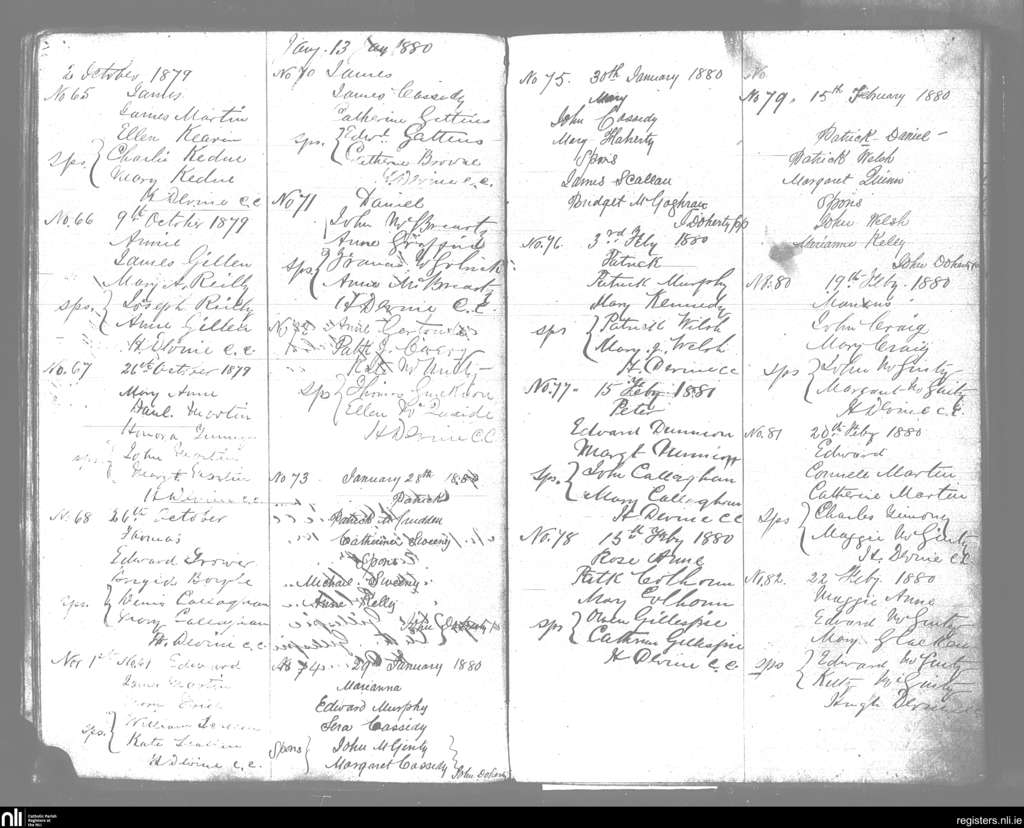 2 October 1879
No 65 James
James Martin
Ellen Kearin
Sps. { Charlie Kedue
Mary Kedue
H Devine C.C
No. 66 9th October 1879
Annie
James Gillen
Mary A. Reilly
Sps. { Joseph Reilly
Anne Gillen
H. Devine C.C.
No. 67 26th October 1879
Mary Anne
Danl. Martin
Honora
Sps { John Martin
Margt Martin
H Devine C.C.
No. 68 26th October
Thomas
Edward
Brigid Boyle
Sps. { Denis Callaghan
Mary Callaghan
H. Devine C.C
Nov 1st Edward
James Martin
Sps. { William
Kate
H Devine C.C.
Jany. 13 1880
No 70 James
James Cassidy
Catherine Gettins
Sps. { Edwd. Gettins
Catherine Browne
H Devine C.C.
No 71 Daniel
John McBrearty
Anne
Sps { Francis
Anne McBrearty
H Devine C.C.
Anne Gertrude
Patk J.
Kate
Sps { Thomas
Ellen
H Devine CC
No 73 January 28th 1880
Patrick
Patrick McCrudden
Catherine Sweeny
Spons
Michael Sweeny
Anne Kelly
John Doherty
No 74 29th January 1880
Marianna
Edward Murphy
Sera Cassidy
Spons { John McGinty
Margaret Cassidy }
John Doherty
No 75. 30th January 1880
Mary
John Cassidy
Mary Flaherty
Spons
James Scallan
Bridget McGoghran
J Doherty PP
No. 76. 3rd Feby 1880
Patrick
Patrick Murphy
Mary Kennedy
Sps { Patrick Welsh
Mary J. Welsh
H. Devine CC
No. 77. 15 Feby 1880
Peter
Edward Dunnion
Margt
Sps. { John Callaghan
Mary Callaghan
H Devine CC
No. 78 15th Feby 1880
Rose Anne
Patk Colhoun
Mary Colhoun
Sps { Owen Gillespie
Cathrine Gillespie
H Devine C.C.
No
No 79. 15th February 1880
Patrick Daniel
Patrick Welsh
Margaret Quinn
Spons
John Welsh
Marianne Kelly
John Doherty
No. 80 19th Feby. 1880
John Craig
Mary Craig
Sps { John McGinty
Margaret McGinty
H Devine C.C.
No. 81 20th Feby 1880
Edward
Connell Martin
Catherine Martin
Sps { Charles
Maggie McGinty
H. Devine C.C.
No. 82. 22 Feby. 1880
Maggie Anne
Edward McGinty
Mary
Sps { Edward McGinty
McGinty
Hugh Devine
nli Catholic Parish
Registers at
the NLI
registers.nli.ie